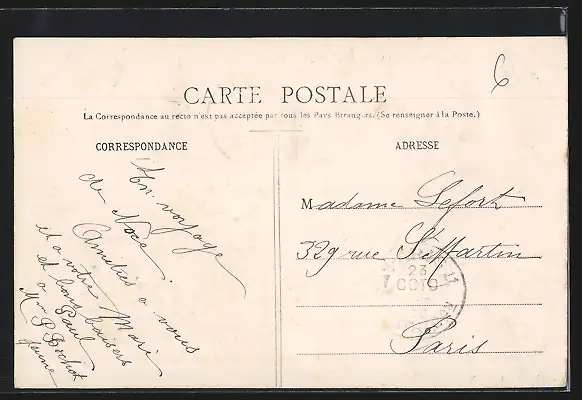 6
CARTE POSTALE
La Correspondance au recto n'est pas acceptée par tous les Pays Etrangers. (Se renseigner à la Poste.)
CORRESPONDANCE
En voyage
de Noce.
Amitiés a vous
et a votre Mari
et bons baisers
a Paul
Mr P Pochat
jeune
ADRESSE
Madame Lefort
329 rue St Martin
Paris
23
OCT 0
11